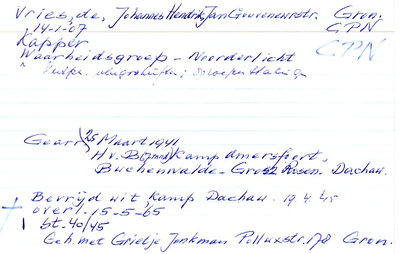 Vries, de, Johannes Hendrik Jan Goeverneurstr. Gron.
14-1-07 CPN
Kapper CPN
Waarheidsgroep - Noorderlicht
Gearr. 25 Maart 1941
H.v.B. Kamp Amersfoort,
Buchenwalde - Grosz Rosen. Dachau.
Bevrijd uit Kamp Dachau. 19.4.45
overl. 15-5-65
bt. 40/45
Geh. met Grietje Jonkman Polluxstr. 178 Gron.